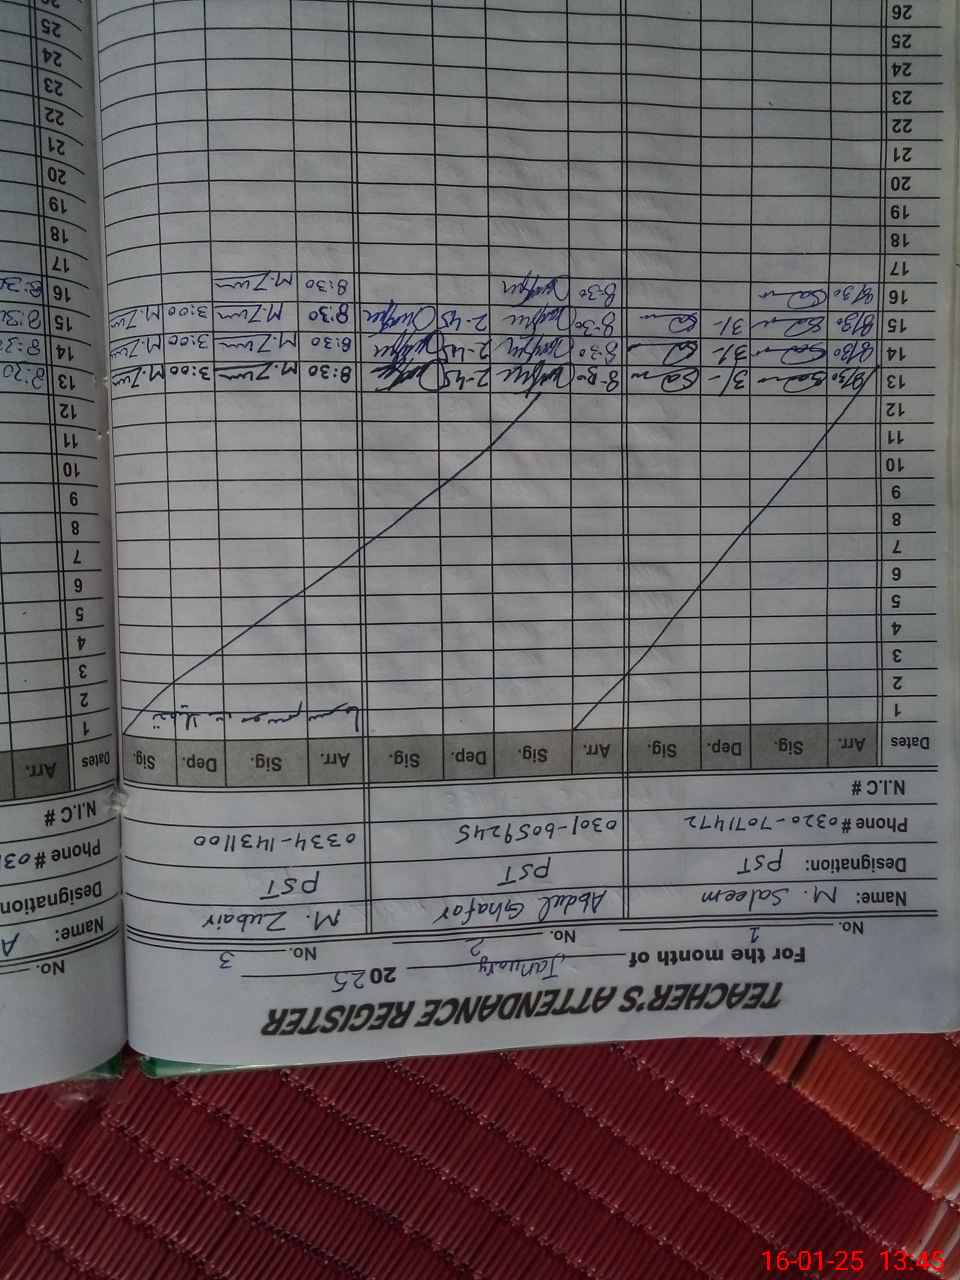 TEACHER'S ATTENDANCE REGISTER
For the month of January 2025
No. 1 No. 2 No. 3
Name: M. Saleem Abdul Ghafor M. Zubair
Designation: PST PST PST
Phone # 0320-7071472 0301-6059245 0334-1431100
N.I.C #
Dates Arr. Sig. Dep. Sig. Arr. Sig. Dep. Sig. Arr. Sig. Dep. Sig.
1
2
3
4
5
6
7
8
9
10
11
12
13 8/30 3/- 8-30 2-45 8:30 M.Zum 3:00 M.Zum
14 8/30 3/- 8-30 2-45 8:30 M.Zum 3:00 M.Zum
15 8/30 3/- 8-30 2-45 8:30 M.Zum 3:00 M.Zum
16 8/30 8-30 8:30 M.Zum
17
18
19
20
21
22
23
24
25
26
No.
Name: A
Designation
Phone # 03
N.I.C #
Dates Arr.
1
2
3
4
5
6
7
8
9
10
11
12
13 8:30
14 8:30
15 8:30
16 8:30
17
18
19
20
21
22
23
24
25
16-01-25 13:45